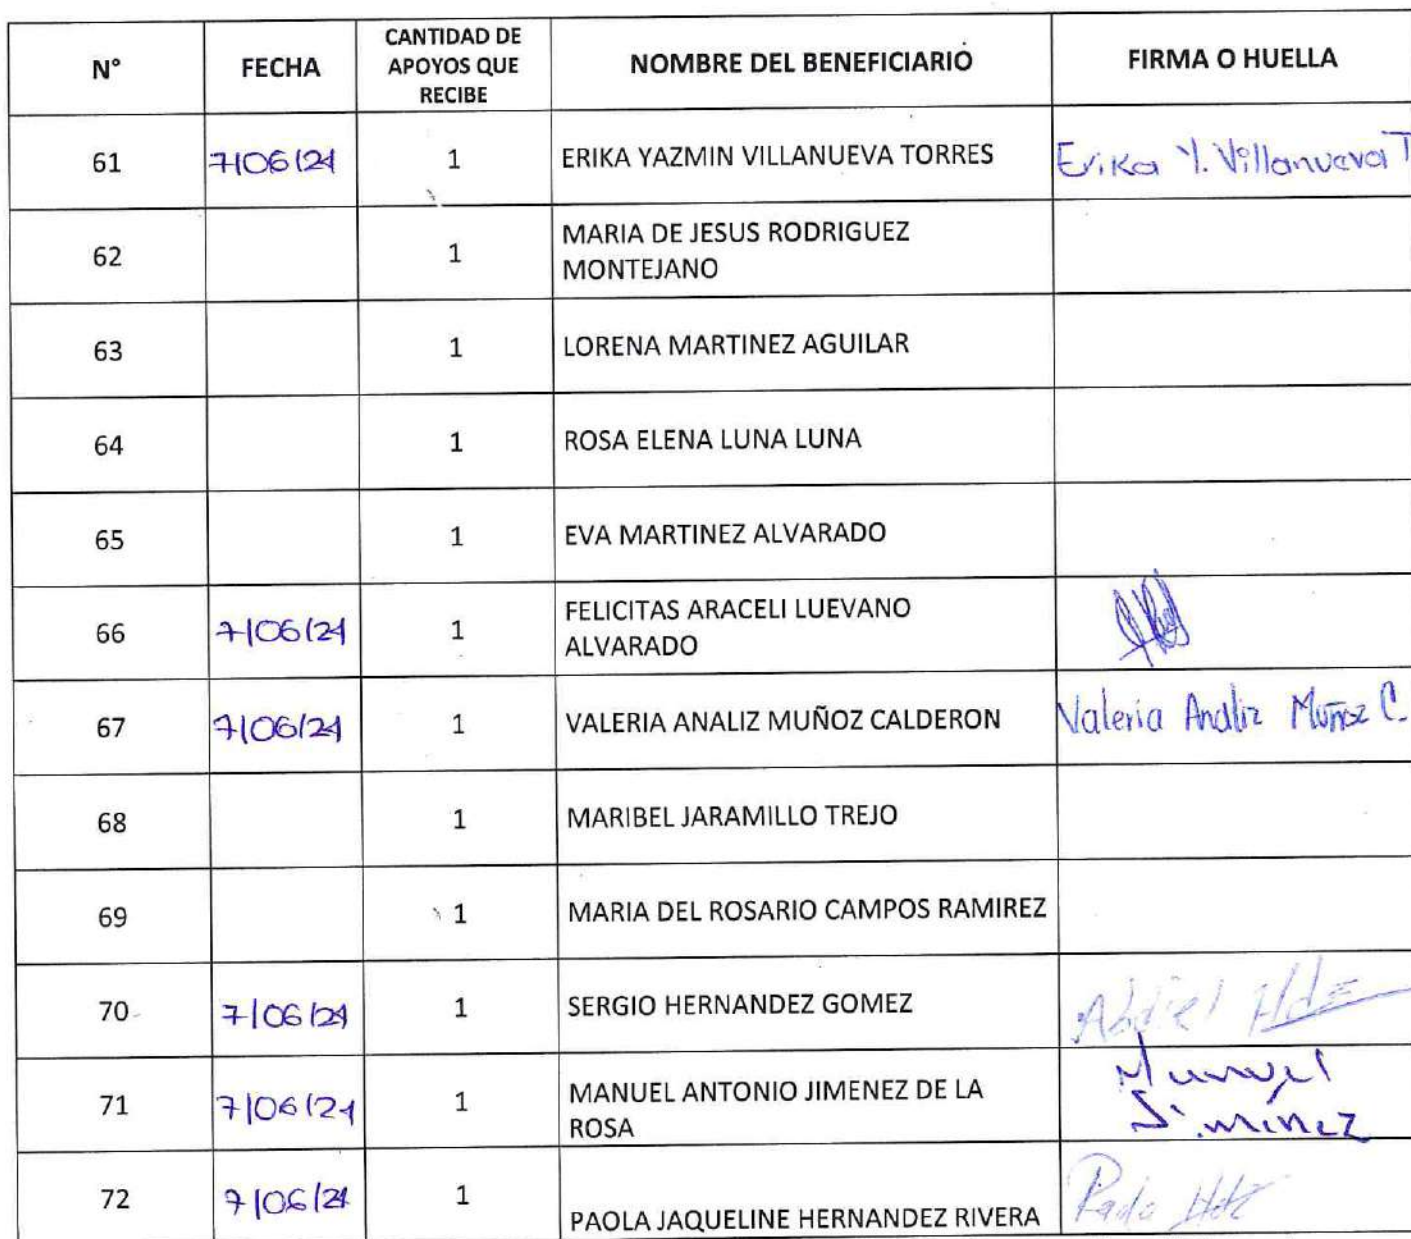 N° FECHA CANTIDAD DE APOYOS QUE RECIBE NOMBRE DEL BENEFICIARIO FIRMA O HUELLA
61 7/06/24 1 ERIKA YAZMIN VILLANUEVA TORRES Erika Y. Villanueva T
62 1 MARIA DE JESUS RODRIGUEZ
MONTEJANO
63 1 LORENA MARTINEZ AGUILAR
64 1 ROSA ELENA LUNA LUNA
65 1 EVA MARTINEZ ALVARADO
66 7/06/24 1 FELICITAS ARACELI LUEVANO
ALVARADO
67 7/06/24 1 VALERIA ANALIZ MUÑOZ CALDERON Valeria Analiz Muñoz C.
68 1 MARIBEL JARAMILLO TREJO
69 1 MARIA DEL ROSARIO CAMPOS RAMIREZ
70 7/06/24 1 SERGIO HERNANDEZ GOMEZ Abdiel Hdz
71 7/06/24 1 MANUEL ANTONIO JIMENEZ DE LA
ROSA Manuel
Jiminez
72 7/06/24 1 PAOLA JAQUELINE HERNANDEZ RIVERA Paola Hdz